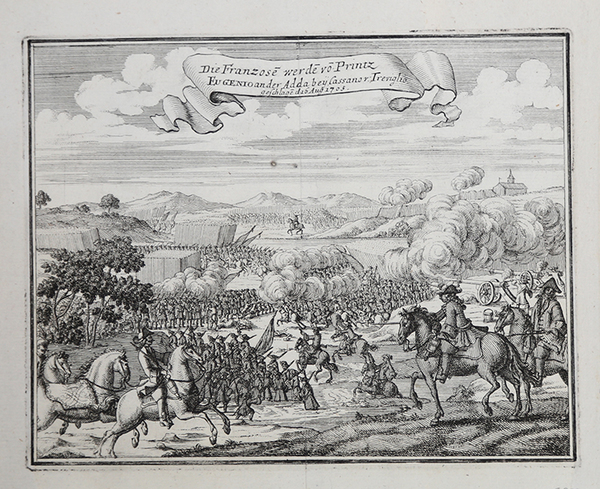 Die Franzosē werdē vō Printz
EUGENIO an der Adda bey Cassano r Treviglio
geschlagē d. 16 Aug 1705.